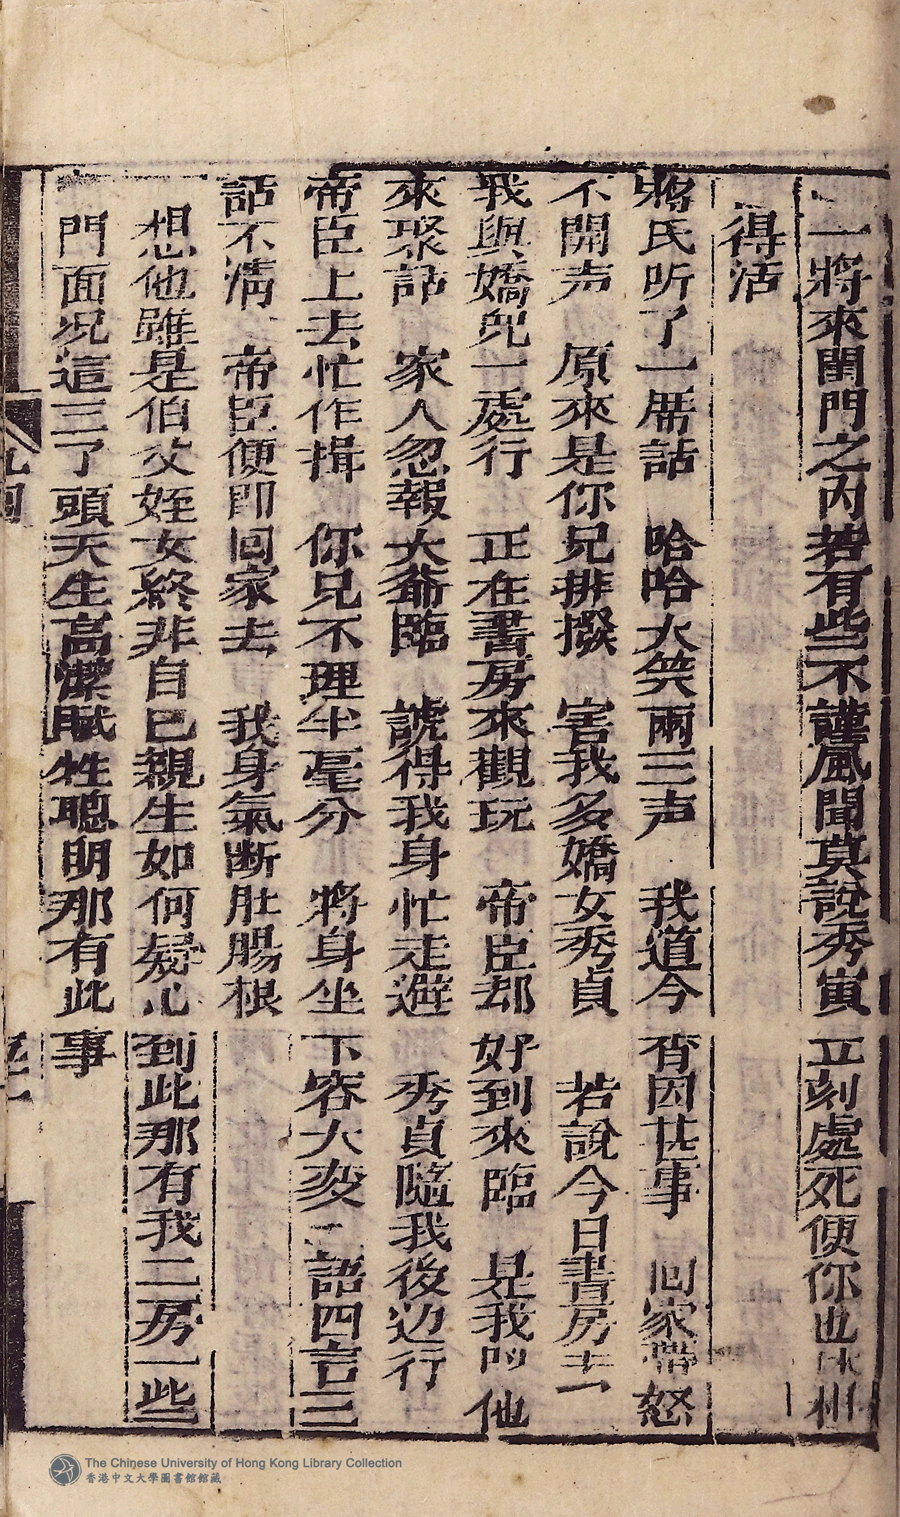 一將來閨門之內若有些不謹風聞莫說秀寅立刻處死便你也休想
得活
蔣氏听了一席話　哈哈大笑兩三声　我道今宵因甚事　回家帶怒
不開声　原來是你兄排撥　害我多嬌女秀貞　若說今日書房去
我與嬌兒一處行　正在書房來觀玩　帝臣却好到來臨　是我同他
來聚話　家人忽報大爺臨　諕得我身忙走避　秀貞隨我後边行
帝臣上去忙作揖　你兄不理半毫分　將身坐下容大変　語四言三
話不清　帝臣便即回家去　我身氣断肚腸根
想他雖是伯父姪女終非自己親生如何疑心到此那有我二房一些
門面况這三了頭天生高潔賦性聰明那有此事
The Chinese University of Hong Kong Library Collection
香港中文大學圖書館館藏